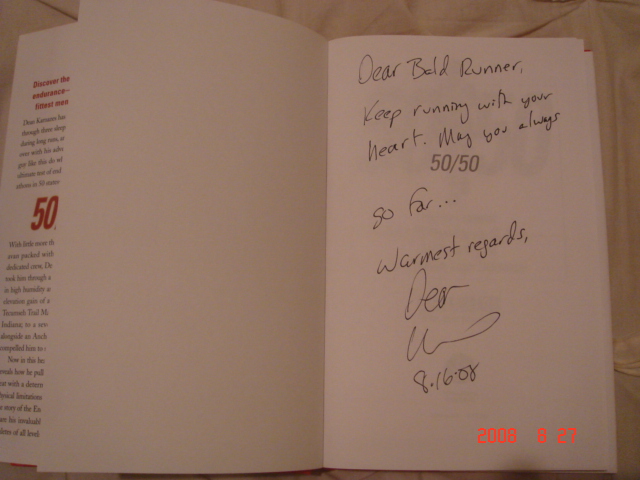 Discover the
endurance–
fittest men
Dean Karnazes has
through three sleep
during long runs, or
over with his adva
guy like this do wh
ultimate test of end
athons in 50 states
50/
With little more th
avan packed with
dedicated crew, De
took him through a
in high humidity a
elevation gain of a
Tecumseh Trail Ma
Indiana; to a sev
alongside an Anch
compelled him to
Now in this bo
reveals how he pull
that with a determ
physical limitations
story of the En
are his invaluabl
athletes of all level
Dear Bald Runner,
Keep running with your
heart. May you always
50/50
go far...
Warmest regards,
Dean
8·16·08
2008 8 27